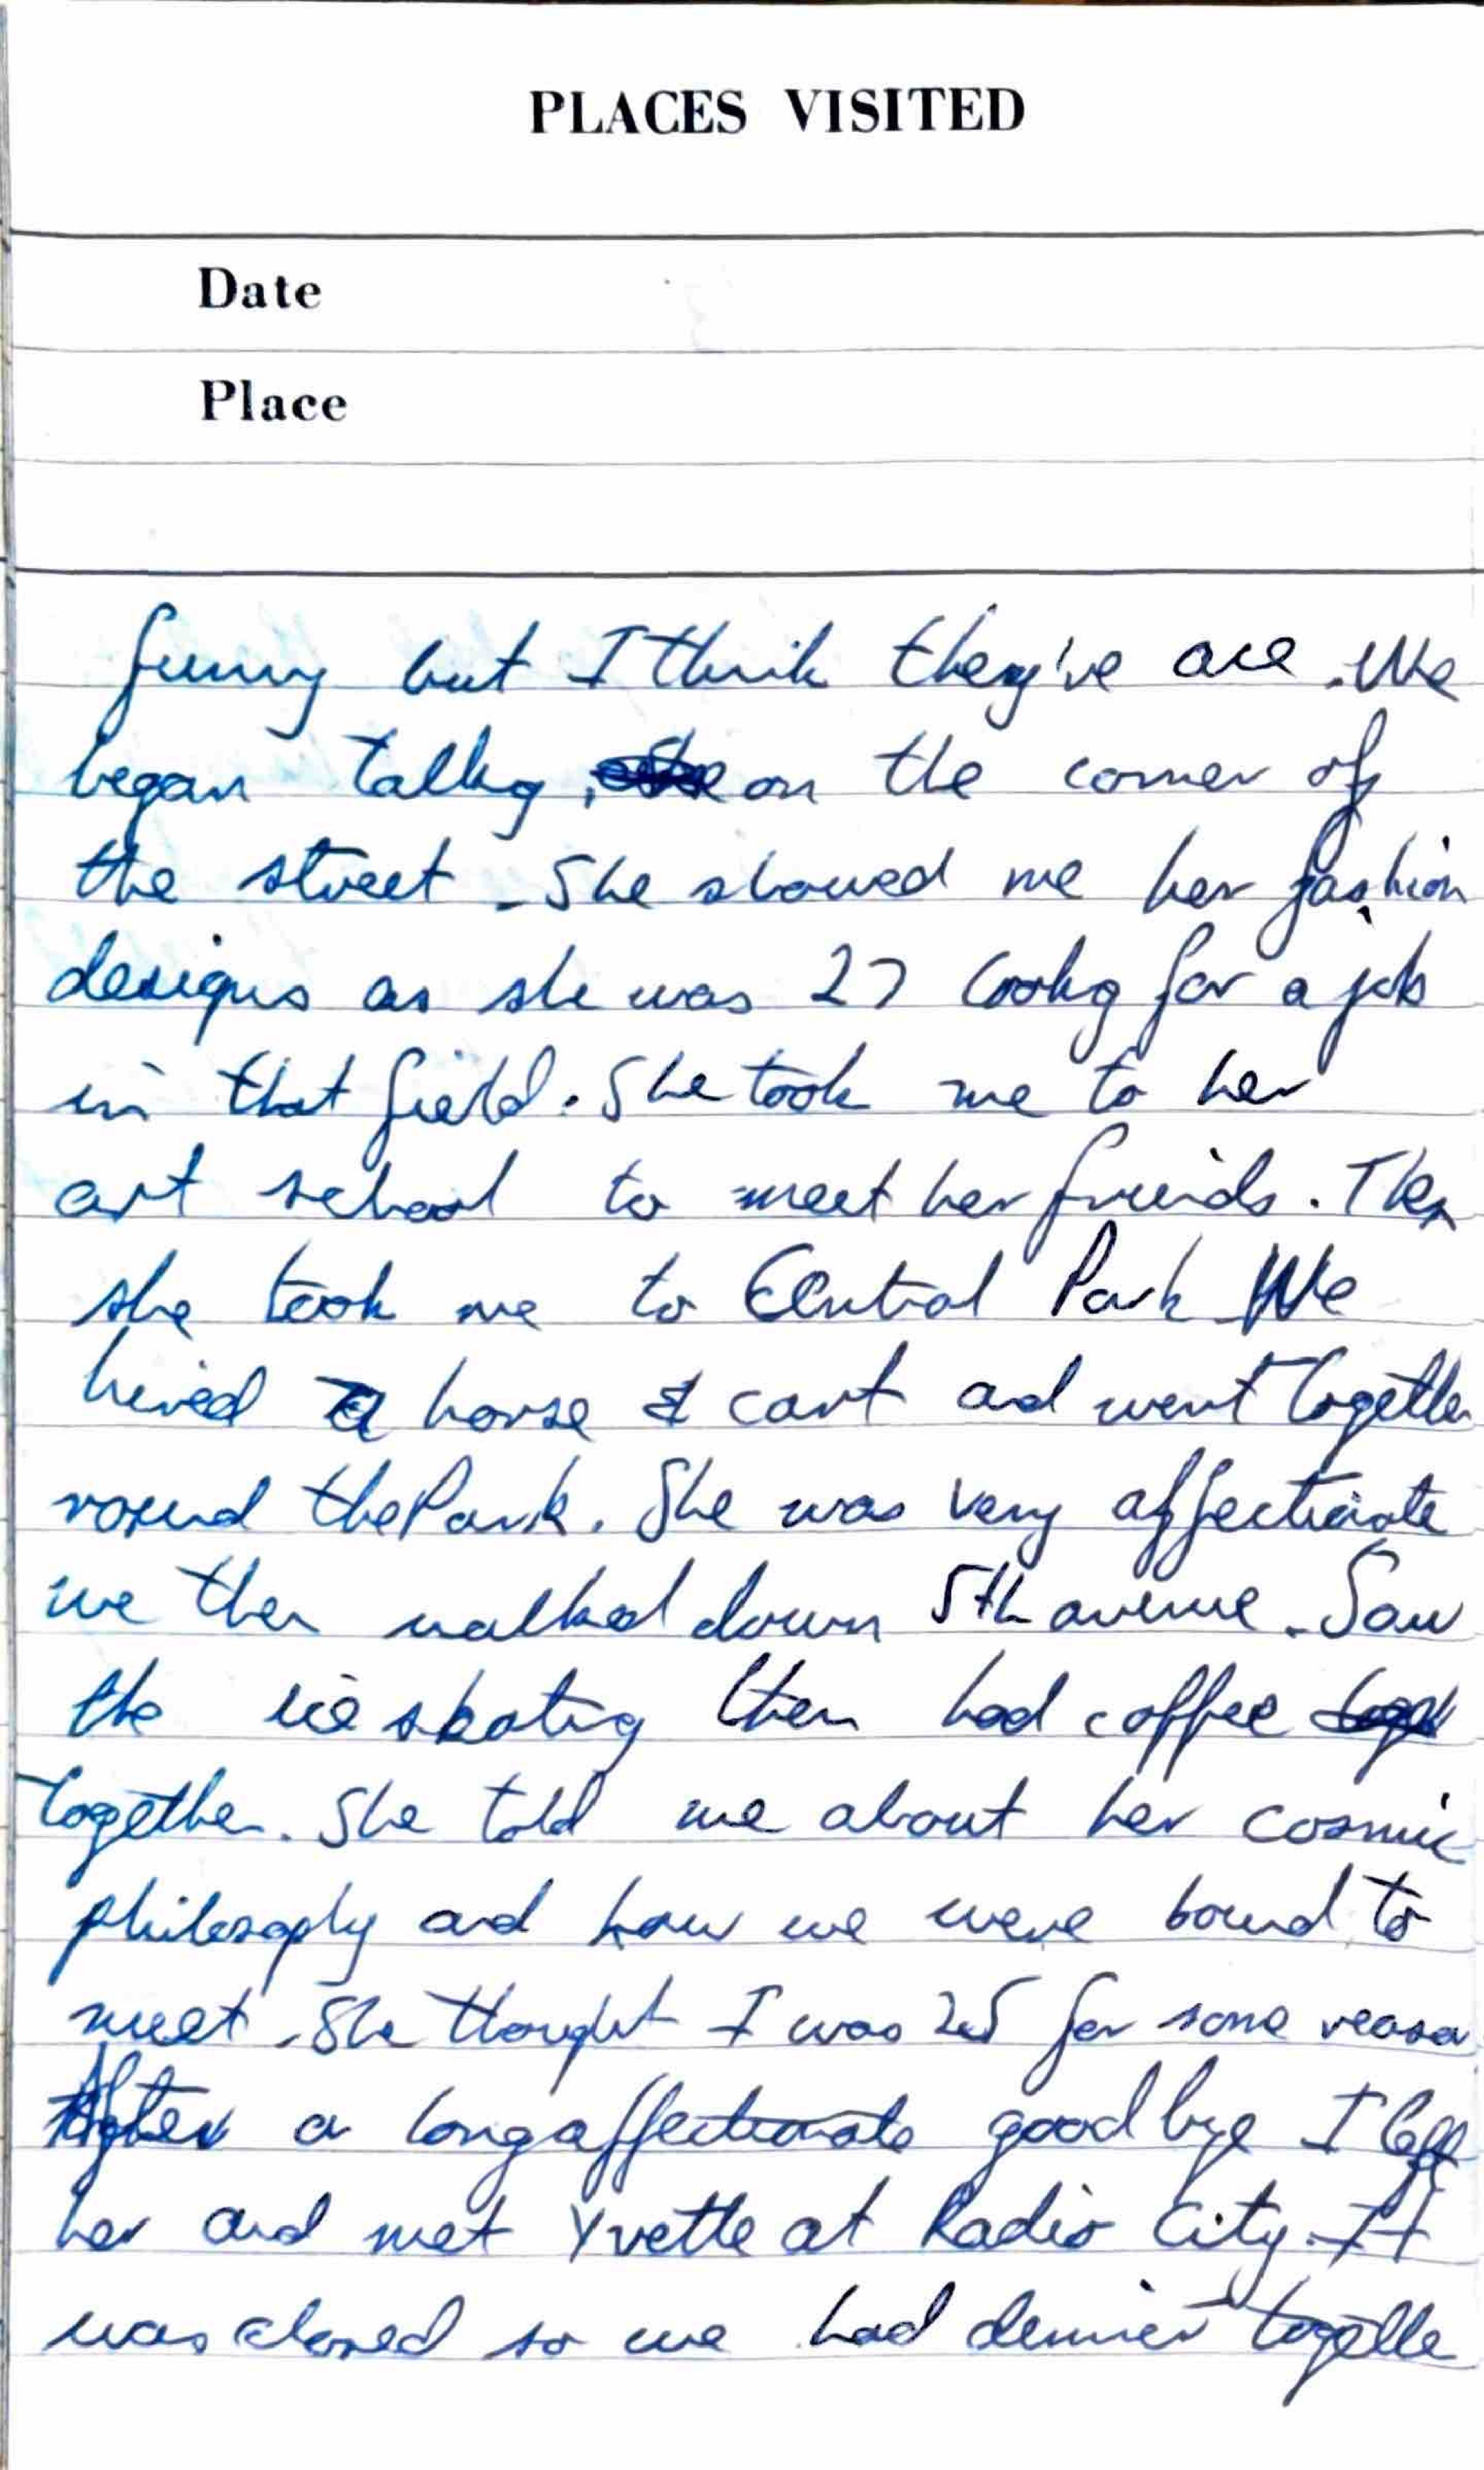 PLACES VISITED
Date
Place
funny but I think they've ace. We
began talkg, on the corner of
the street - She showed me her fashion
designs as she was 27 lookg for a job
in that field. She took me to her
art school to meet her friends. Then
she took me to Central Park We
hired a horse & cart and went together
round the Park. She was very affectionate
we then walked down 5th avenue. Saw
the ice skating then had coffee
together. She told me about her cosmic
philosophy and how we were bound to
meet. She thought I was 25 for some reason
After a long affectionate good bye I left
her and met Yvette at Radio City. It
was closed so we had dinner together